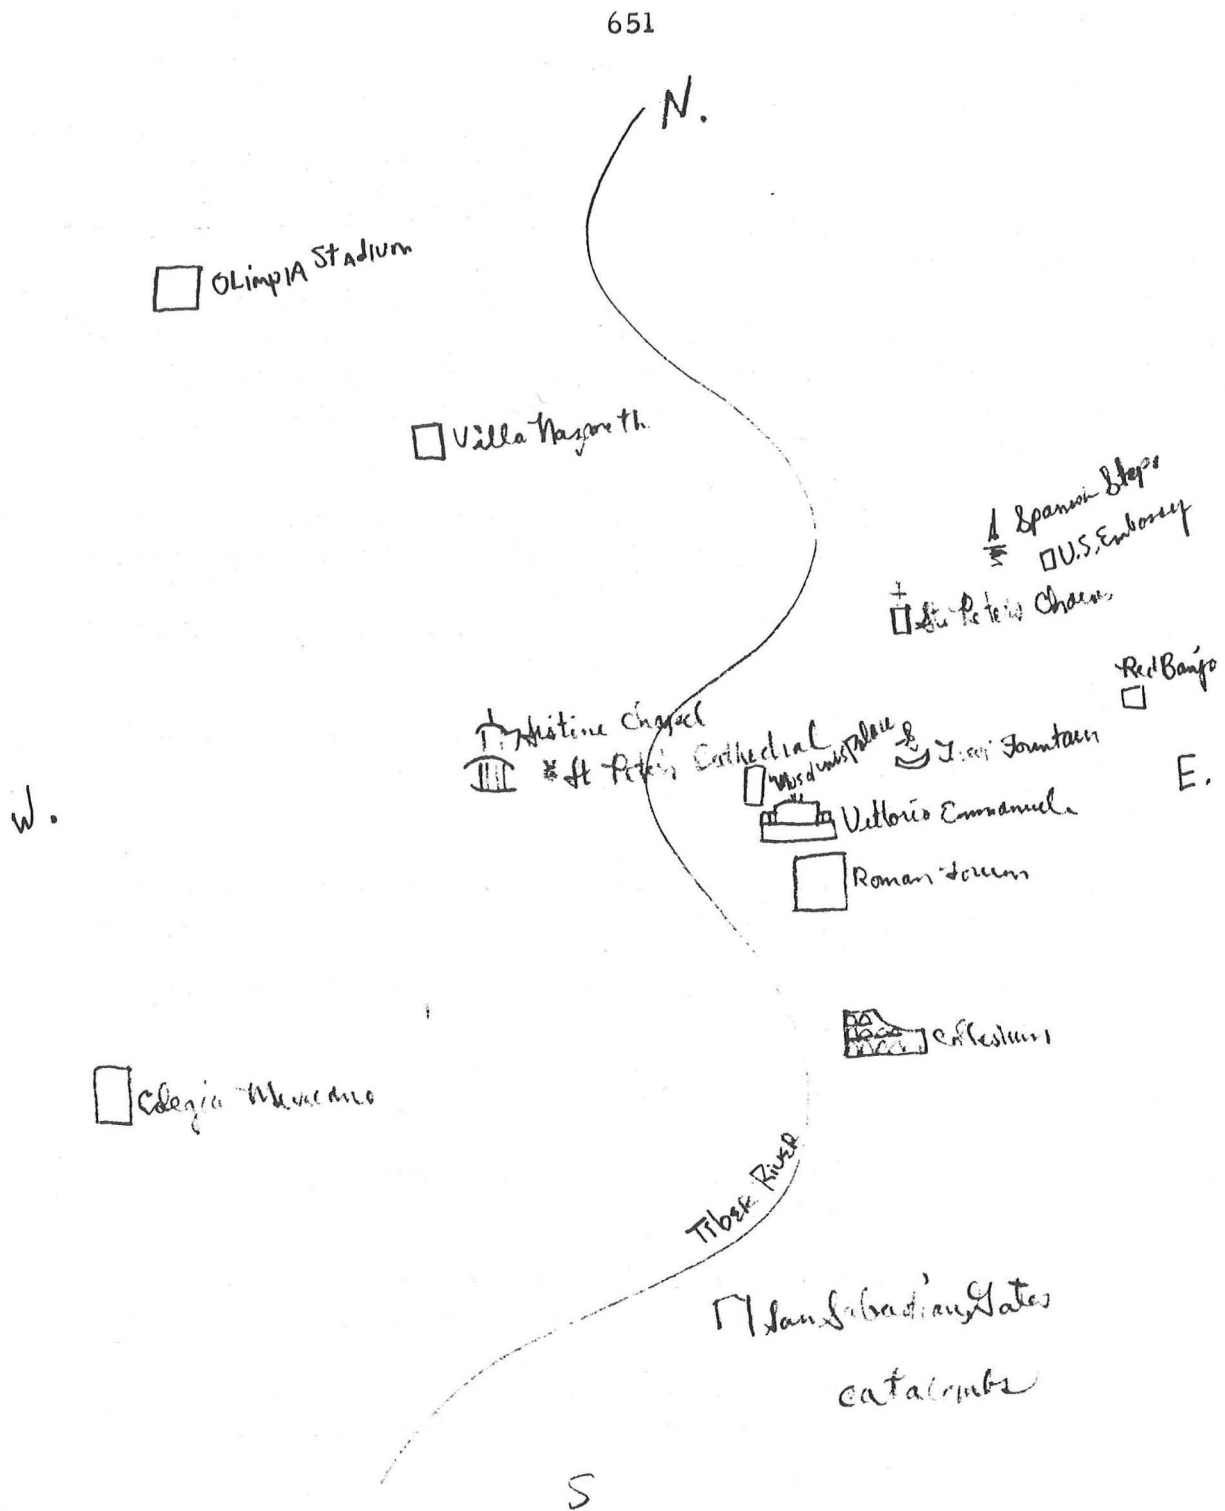 651
N.
OLimpIA Stadium
Villa Nazareth
Spanish Steps
U.S. Embassy
St. Peter's
Red Banjo
Sistine Chapel
* St Peter's Cathedral
Palace
Trevi Fountain
E.
W.
Vittorio Emmanuele
Roman Forum
Collesium
Colegio Mexicano
Tiber River
San Sebastian Gates
catacombs
S